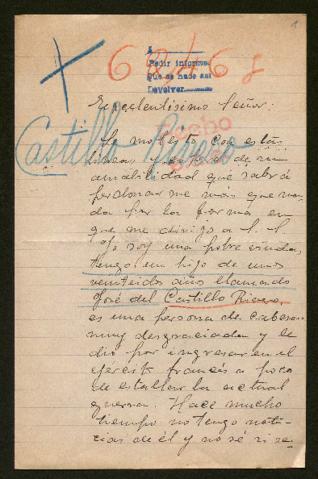 1
A
Pedir informe
que se hace así
Devolver
68468
Excelentísimo Señor:
Le molesto con estas
líneas,
amabilidad que sabrá
perdonarme más que na-
da por la forma en
que me dirijo a S. E.
Yo soy una pobre viuda,
tengo un hijo de unos
veintidos años llamado
José del Castillo Rivero
es una persona de cabeza
muy desgraciada y le
dió por ingresar en el
ejército francés a poco
de estallar la actual
guerra. Hace mucho
tiempo no tengo noti-
cias de él y no sé si se
Castillo Rivero